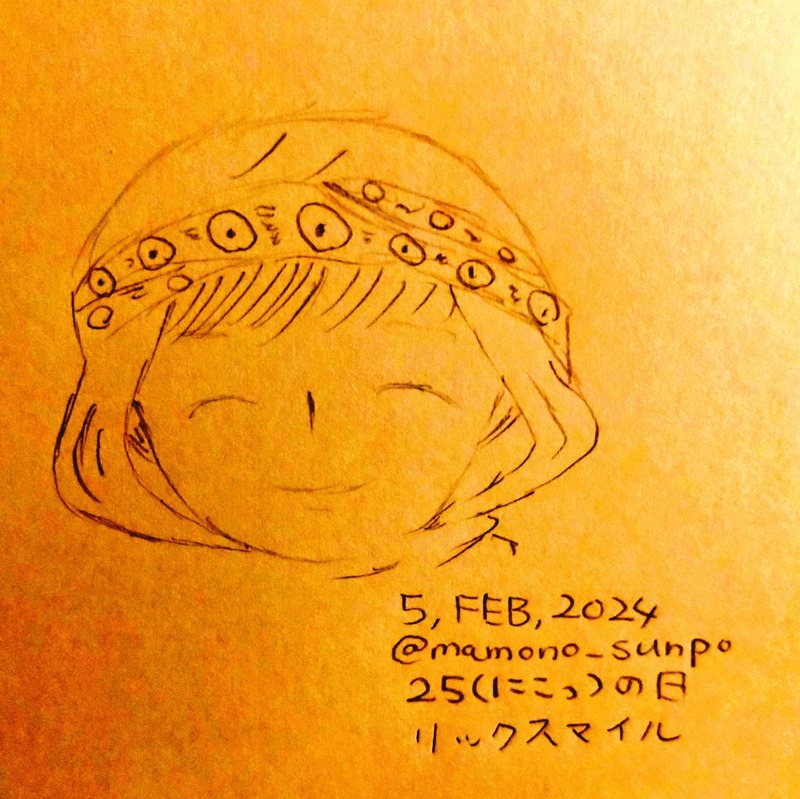 5, FEB, 2024
@mamono_sunpo
25(にこっ)の日
リックスマイル